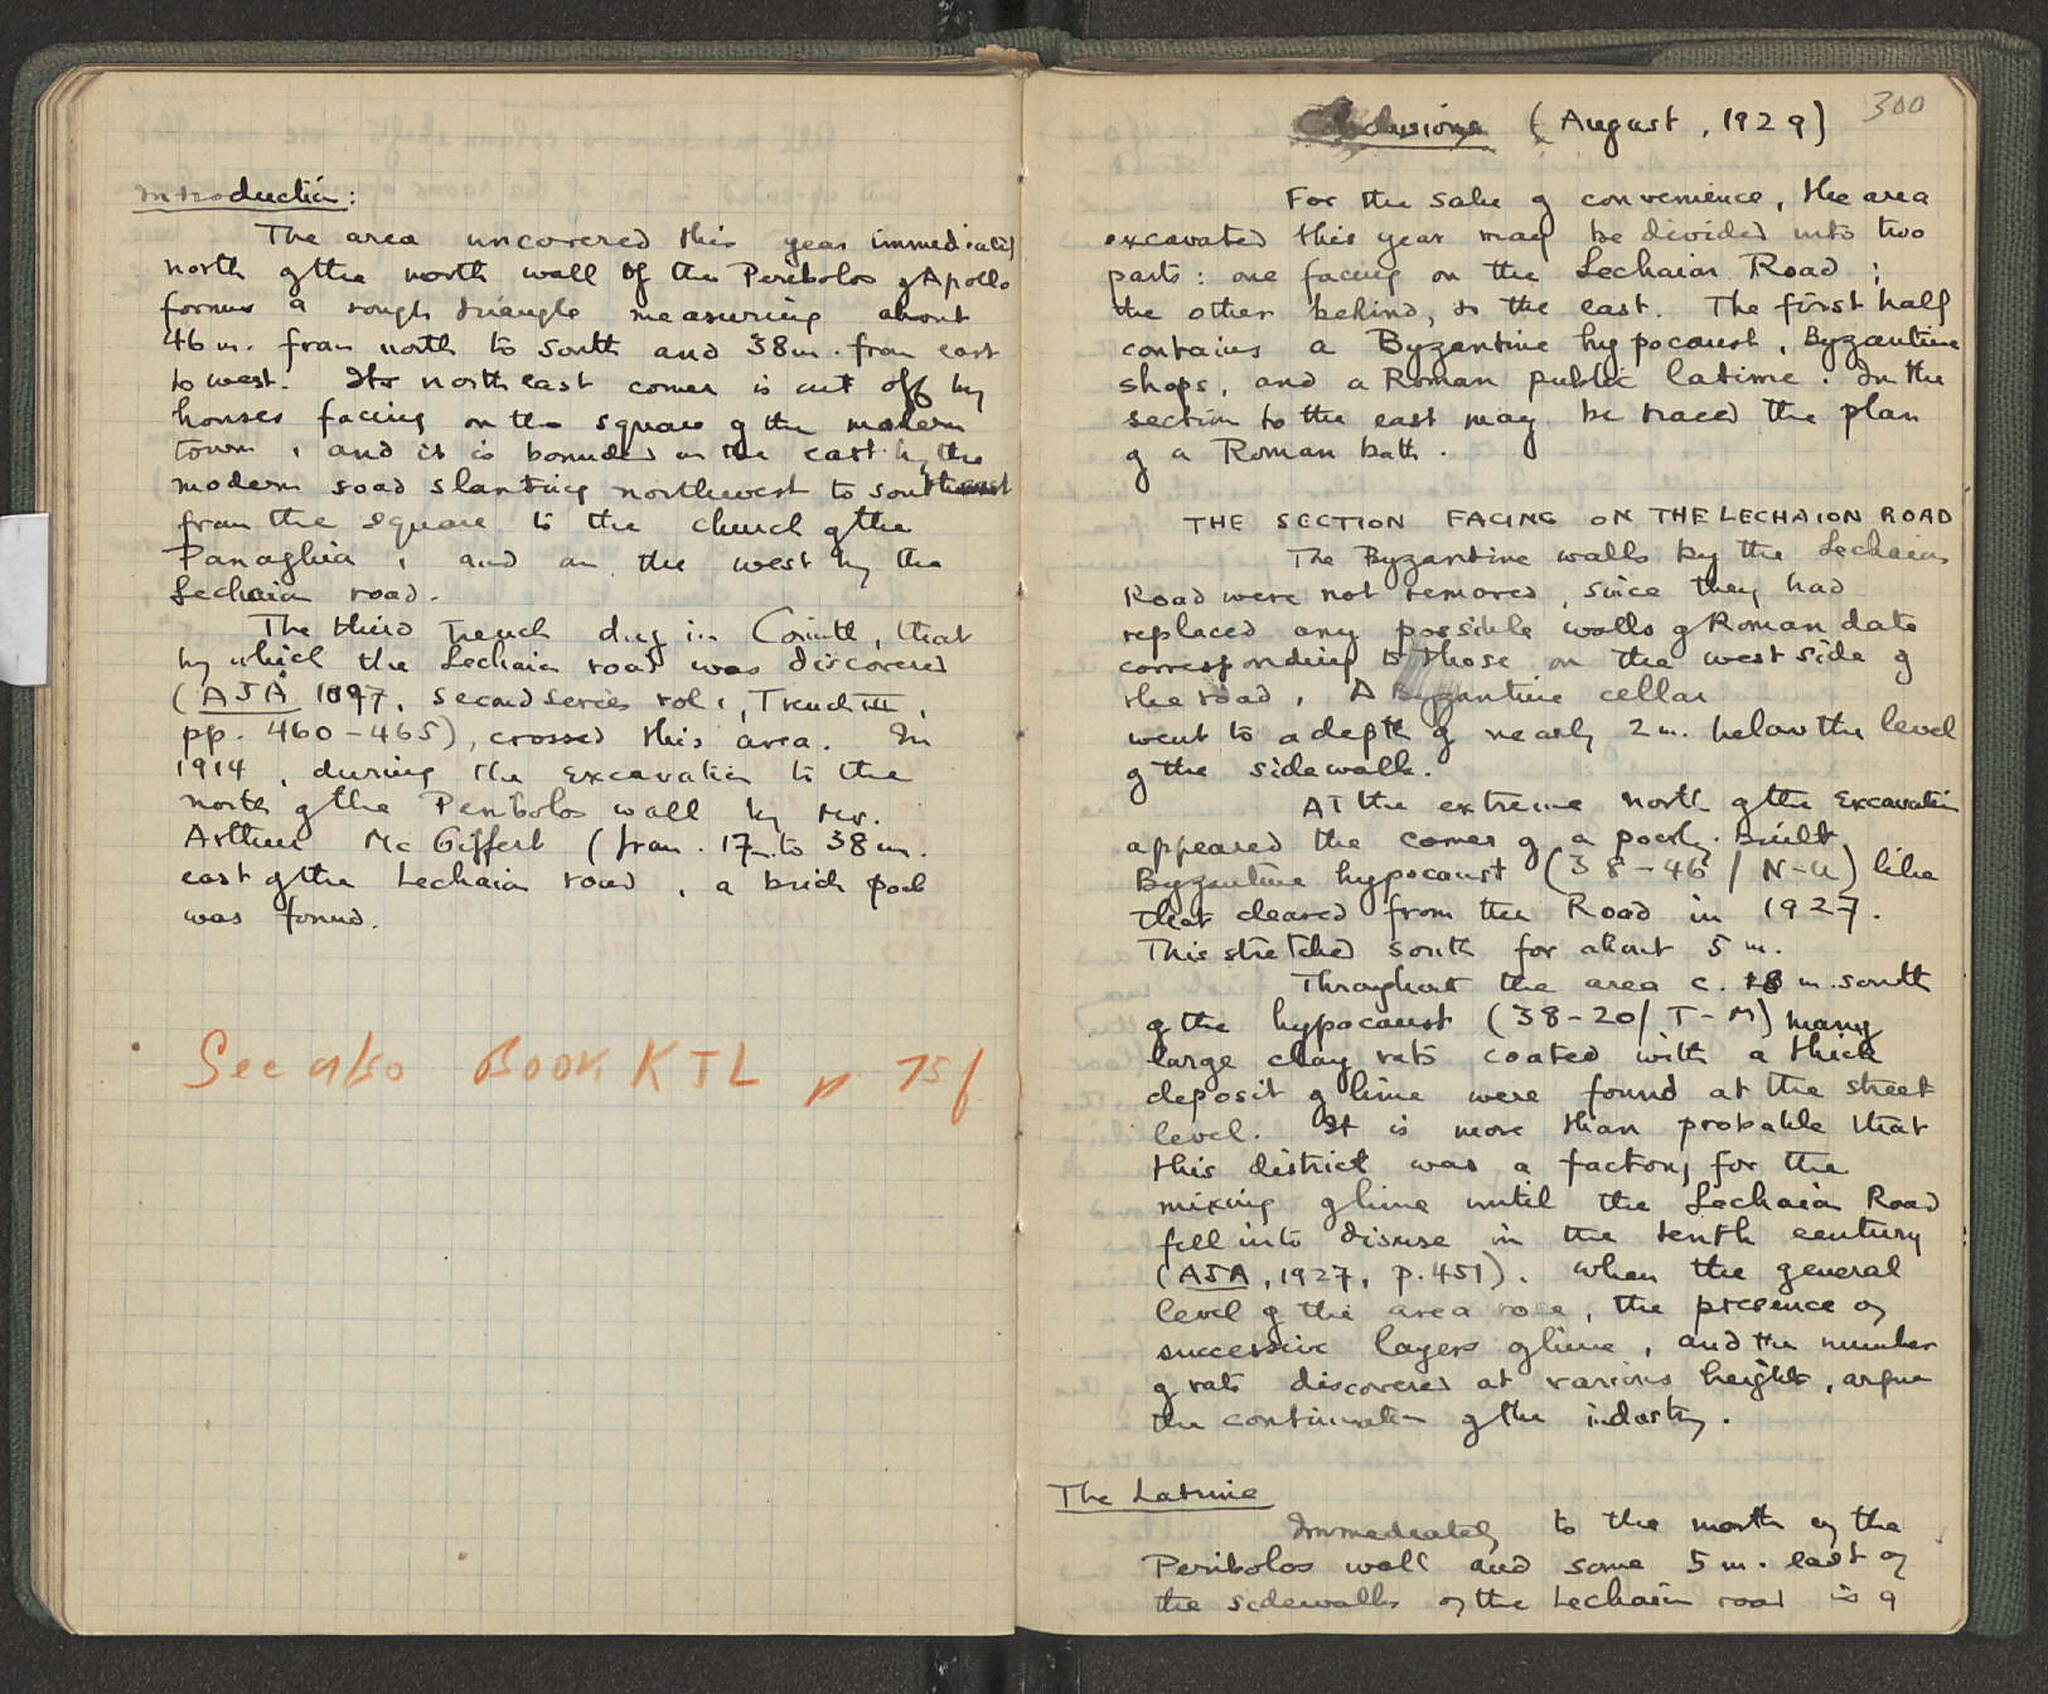 Introduction:
The area uncovered this year immediately
north of the north wall of the Peribolos of Apollo
forms a rough triangle measuring about
46 m. from north to south and 38 m. from east
to west. Its north east corner is cut off by
houses facing on the square of the modern
town, and it is bounded on the east by the
modern road slanting northwest to southeast
from the square to the church of the
Panaghia, and on the west by the
Lechaion road.
The third Trench dug in Corinth, that
by which the Lechaion road was discovered
(AJA 1897, second series vol 1, Trench III,
pp. 460-465), crossed this area. In
1914, during the excavation to the
north of the Peribolos wall by Mr.
Arthur McGiffert (from 17 m. to 38 m.
east of the Lechaion road, a brick pool
was found.
See also Book KTL p 75 f.
300
Conclusions (August, 1929)
For the sake of convenience, the area
excavated this year may be divided into two
parts: one facing on the Lechaion Road;
the other behind, to the east. The first half
contains a Byzantine hypocaust, Byzantine
shops, and a Roman public latrine. In the
section to the east may be traced the plan
of a Roman bath.
THE SECTION FACING ON THE LECHAION ROAD
The Byzantine walls by the Lechaion
Road were not removed, since they had
replaced any possible walls of Roman date
corresponding to those on the west side of
the road. A Byzantine cellar
went to a depth of nearly 2 m. below the level
of the sidewalk.
At the extreme north of the excavation
appeared the corner of a poorly built
Byzantine hypocaust (38-46 / N-U) like
that cleared from the Road in 1927.
This stretched south for about 5 m.
Throughout the area c. 18 m. south
of the hypocaust (38-20/ T-M) many
large clay vats coated with a thick
deposit of lime were found at the street
level. It is more than probable that
this district was a factory for the
mixing of lime until the Lechaion Road
fell into disuse in the tenth century
(AJA, 1927, p. 451). When the general
level of the area rose, the presence of
successive layers of lime, and the number
of vats discovered at various heights, argue
the continuation of the industry.
The Latrine
Immediately to the north of the
Peribolos wall and some 5 m. east of
the sidewalk of the Lechaion road is a